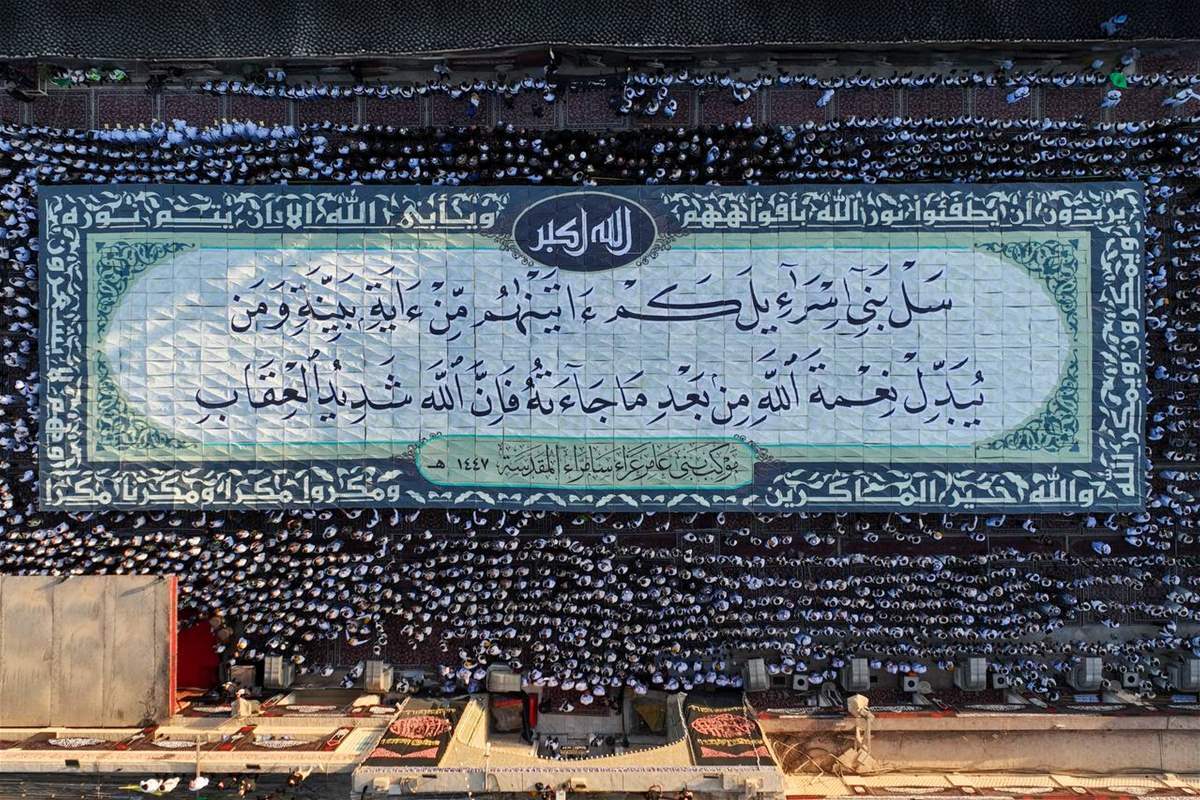 يريدون أن يطفئوا نور الله بأفواههم
الله اكبر
ويأبى الله الا ان يتم نوره
سَلْ بَنِىٓ إِسْرَٰٓءِيلَ كَمْ ءَاتَيْنَٰهُم مِّنْ ءَايَةٍۭ بَيِّنَةٍ وَمَن
يُبَدِّلْ نِعْمَةَ ٱللَّهِ مِنۢ بَعْدِ مَا جَآءَتْهُ فَإِنَّ ٱللَّهَ شَدِيدُ ٱلْعِقَابِ
موكب بني عامر عزاء سامراء المقدسة ١٤٤٧ هـ
ويمكرون ويمكر الله
والله خير الماكرين
ومكروا مكرا ومكرنا مكرا